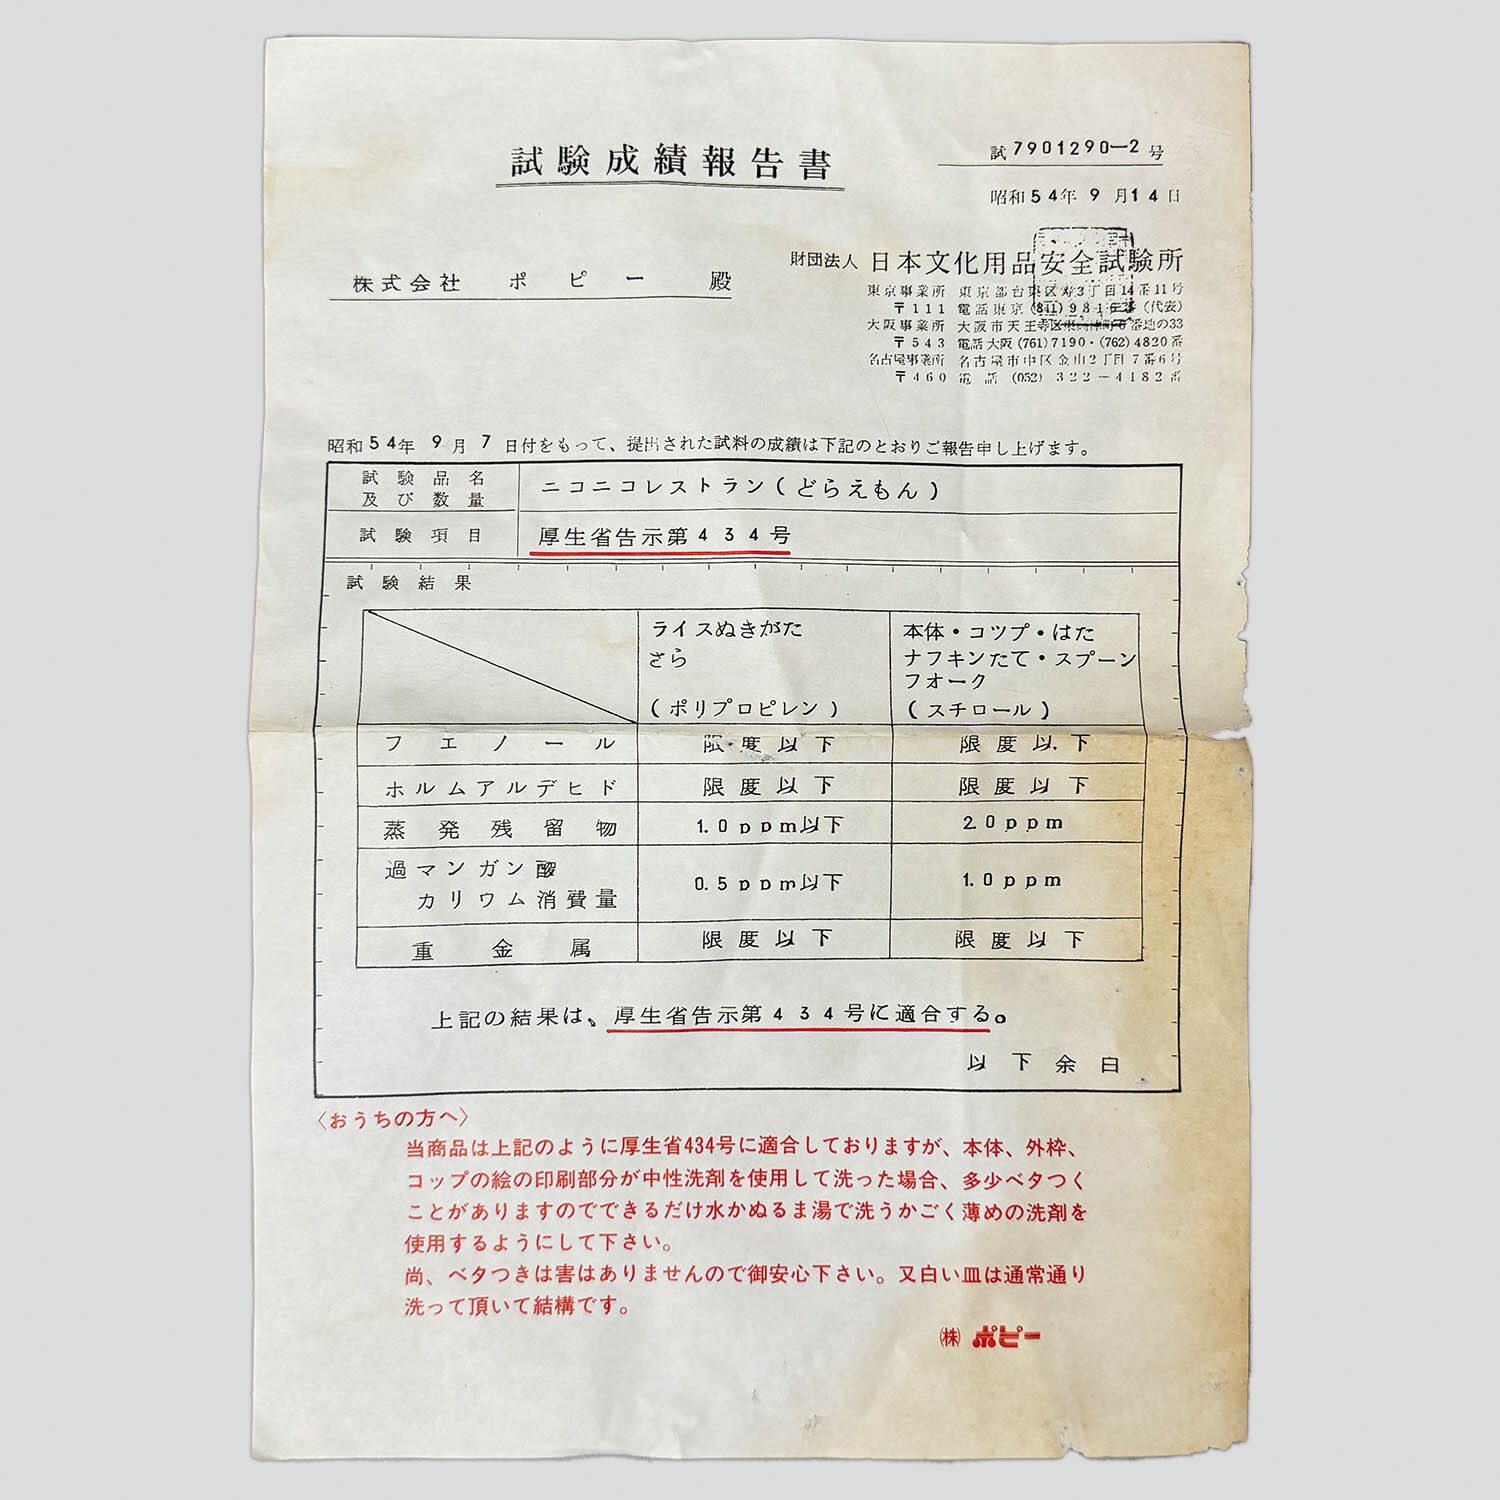 試験成績報告書
試7901290-2号
昭和54年9月14日
株式会社 ポピー 殿
財団法人 日本文化用品安全試験所
東京事業所 東京都台東区寿3丁目14番11号
〒111 電話東京(841)9816番(代表)
大阪事業所 大阪市天王寺区東高津町6番地の33
〒543 電話大阪(761)7190・(762)4820番
名古屋事業所 名古屋市中区金山2丁目7番6号
〒460 電話 (052)322-4182番
昭和54年9月7日付をもって、提出された試料の成績は下記のとおりご報告申し上げます。
試験品名及び数量 ニコニコレストラン(どらえもん)
試験項目 厚生省告示第434号
試験結果
ライスぬきがた
さら
(ポリプロピレン)
本体・コツプ・はた
ナフキンたて・スプーン
フオーク
(スチロール)
フエノール 限度以下 限度以下
ホルムアルデヒド 限度以下 限度以下
蒸発残留物 1.0ppm以下 2.0ppm
過マンガン酸
カリウム消費量 0.5ppm以下 1.0ppm
重金属 限度以下 限度以下
上記の結果は、厚生省告示第434号に適合する。
以下余白
〈おうちの方へ〉
当商品は上記のように厚生省434号に適合しておりますが、本体、外枠、
コップの絵の印刷部分が中性洗剤を使用して洗った場合、多少ベタつく
ことがありますのでできるだけ水かぬるま湯で洗うかごく薄めの洗剤を
使用するようにして下さい。
尚、ベタつきは害はありませんので御安心下さい。又白い皿は通常通り
洗って頂いて結構です。
㈱ ポピー